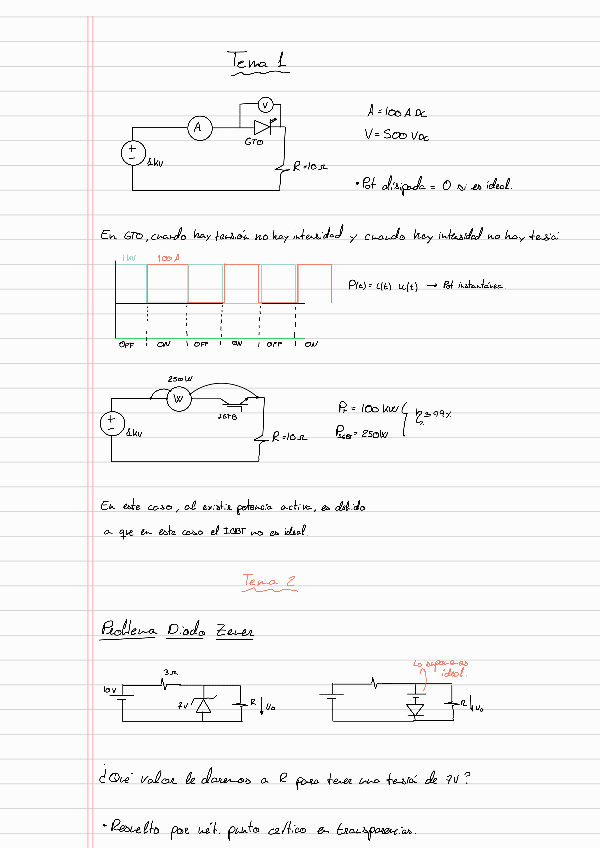 Tema 1
V
A
GTO
1kV
R=10Ω
A = 100 A DC
V = 500 V DC
• Pot disipada = 0 si es ideal.
En GTO, cuando hay tensión no hay intensidad y cuando hay intensidad no hay tensió
1kV 100 A
P(t) = i(t) u(t) → Pot instantánea.
OFF ON OFF ON OFF ON
250W
W
IGTB
1kV
R=10Ω
Pr = 100 kW
P_IGBT = 250W
η ≃ 99%
En este caso, al existir potencia activa, es debido
a que en este caso el IGBT no es ideal.
Tema 2
Problema Diodo Zener
Lo supone es
ideal.
3Ω
10V
7V
R
Vo
R
Vo
¿Qué valor le daremos a R para tener una tensión de 7V?
• Resuelto por mét. punto crítico en transparencias.